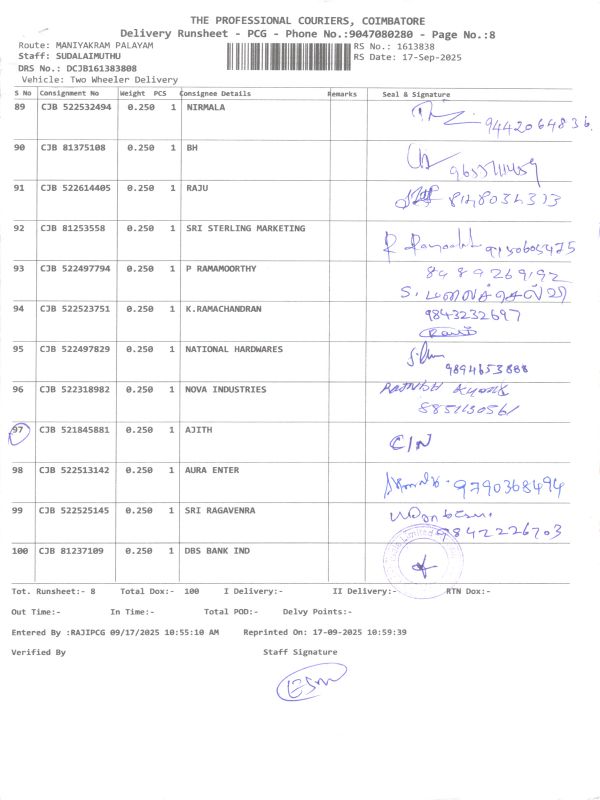 THE PROFESSIONAL COURIERS, COIMBATORE
Delivery Runsheet - PCG - Phone No.:9047080280 - Page No.:8
Route: MANIYAKRAM PALAYAM RS No.: 1613838
Staff: SUDALAIMUTHU RS Date: 17-Sep-2025
DRS No.: DCJB161383808
Vehicle: Two Wheeler Delivery
S No Consignment No Weight PCS Consignee Details Remarks Seal & Signature
89 CJB 522532494 0.250 1 NIRMALA
9442064836.
90 CJB 81375108 0.250 1 BH
91 CJB 522614405 0.250 1 RAJU
92 CJB 81253558 0.250 1 SRI STERLING MARKETING
93 CJB 522497794 0.250 1 P RAMAMOORTHY 8489269192
94 CJB 522523751 0.250 1 K.RAMACHANDRAN 9843232697
95 CJB 522497829 0.250 1 NATIONAL HARDWARES
9894653888
96 CJB 522318982 0.250 1 NOVA INDUSTRIES
8851130561
97 CJB 521845881 0.250 1 AJITH C/N
98 CJB 522513142 0.250 1 AURA ENTER 9790368494
99 CJB 522525145 0.250 1 SRI RAGAVENRA
9842226703
100 CJB 81237109 0.250 1 DBS BANK IND
Tot. Runsheet:- 8 Total Dox:- 100 I Delivery:- II Delivery:- RTN Dox:-
Out Time:- In Time:- Total POD:- Delvy Points:-
Entered By :RAJIPCG 09/17/2025 10:55:10 AM Reprinted On: 17-09-2025 10:59:39
Verified By Staff Signature